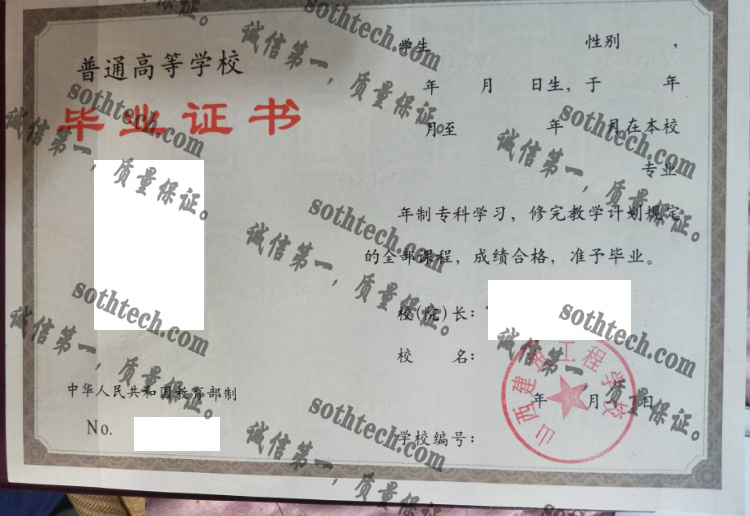 普通高等学校
毕业证书
中华人民共和国教育部制
No.
学生 性别 ，
年 月 日生，于 年
月至 年 月在本校
专业
年制专科学习，修完教学计划规定
的全部课程，成绩合格，准予毕业。
校(院)长：
校 名：
年 月 日
学校编号：
山西建 工程学校
sothtech.com
诚信第一，质量保证。
sothtech.com
诚信第一，质量保证。
sothtech.com
诚信第一，质量保证。
sothtech.com
诚信第一，质量保证。
sothtech.com
诚信第一，质量保证。
sothtech.com
诚信第一，质量保证。
sothtech.com
诚信第一，质量保证。
sothtech.com